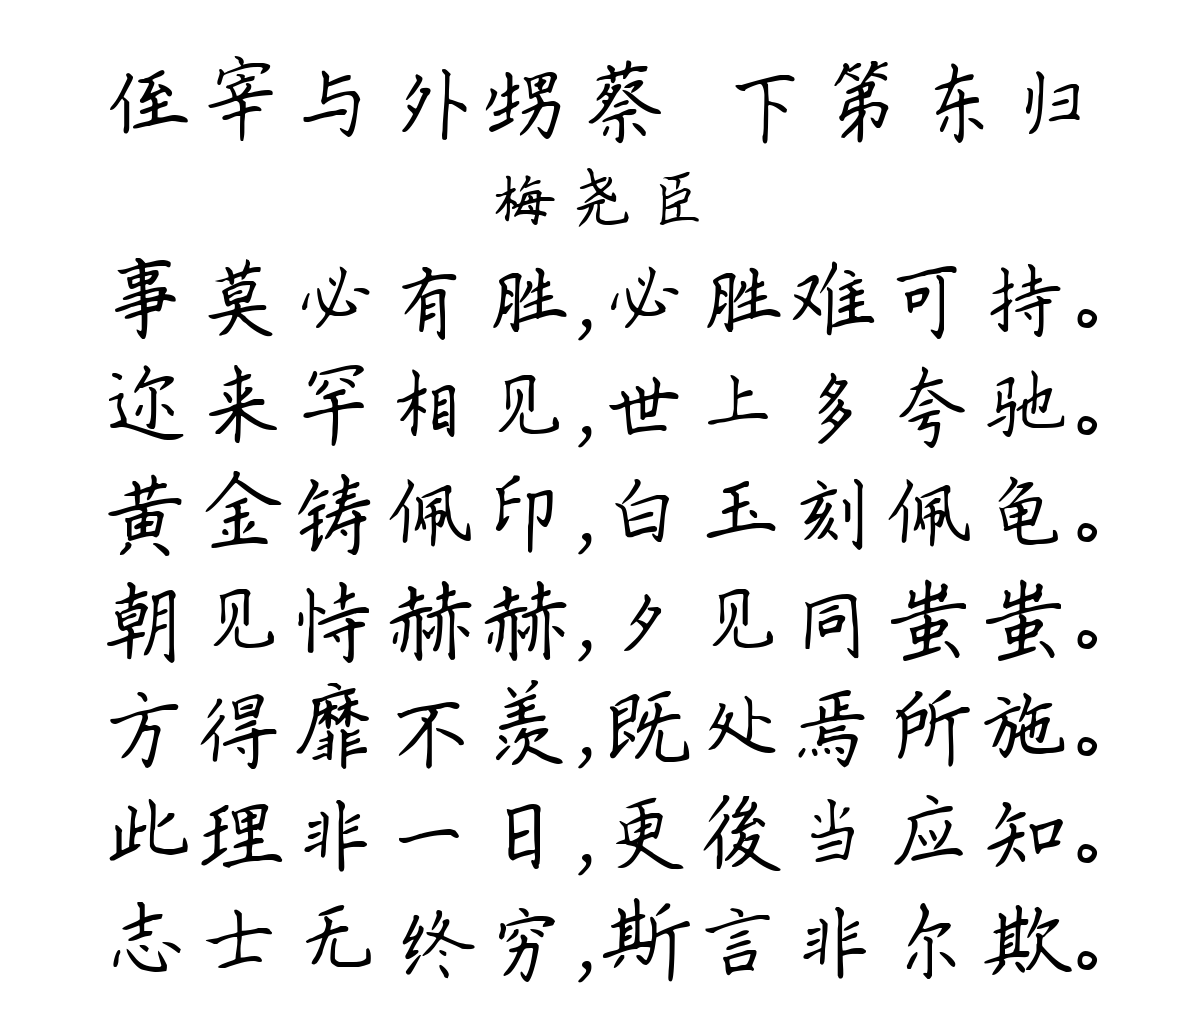 侄宰与外甥蔡 下第东归
梅尧臣
事莫必有胜,必胜难可持。
迩来罕相见,世上多夸驰。
黄金铸佩印,白玉刻佩龟。
朝见恃赫赫,夕见同蚩蚩。
方得靡不羡,既处焉所施。
此理非一日,更後当应知。
志士无终穷,斯言非尔欺。